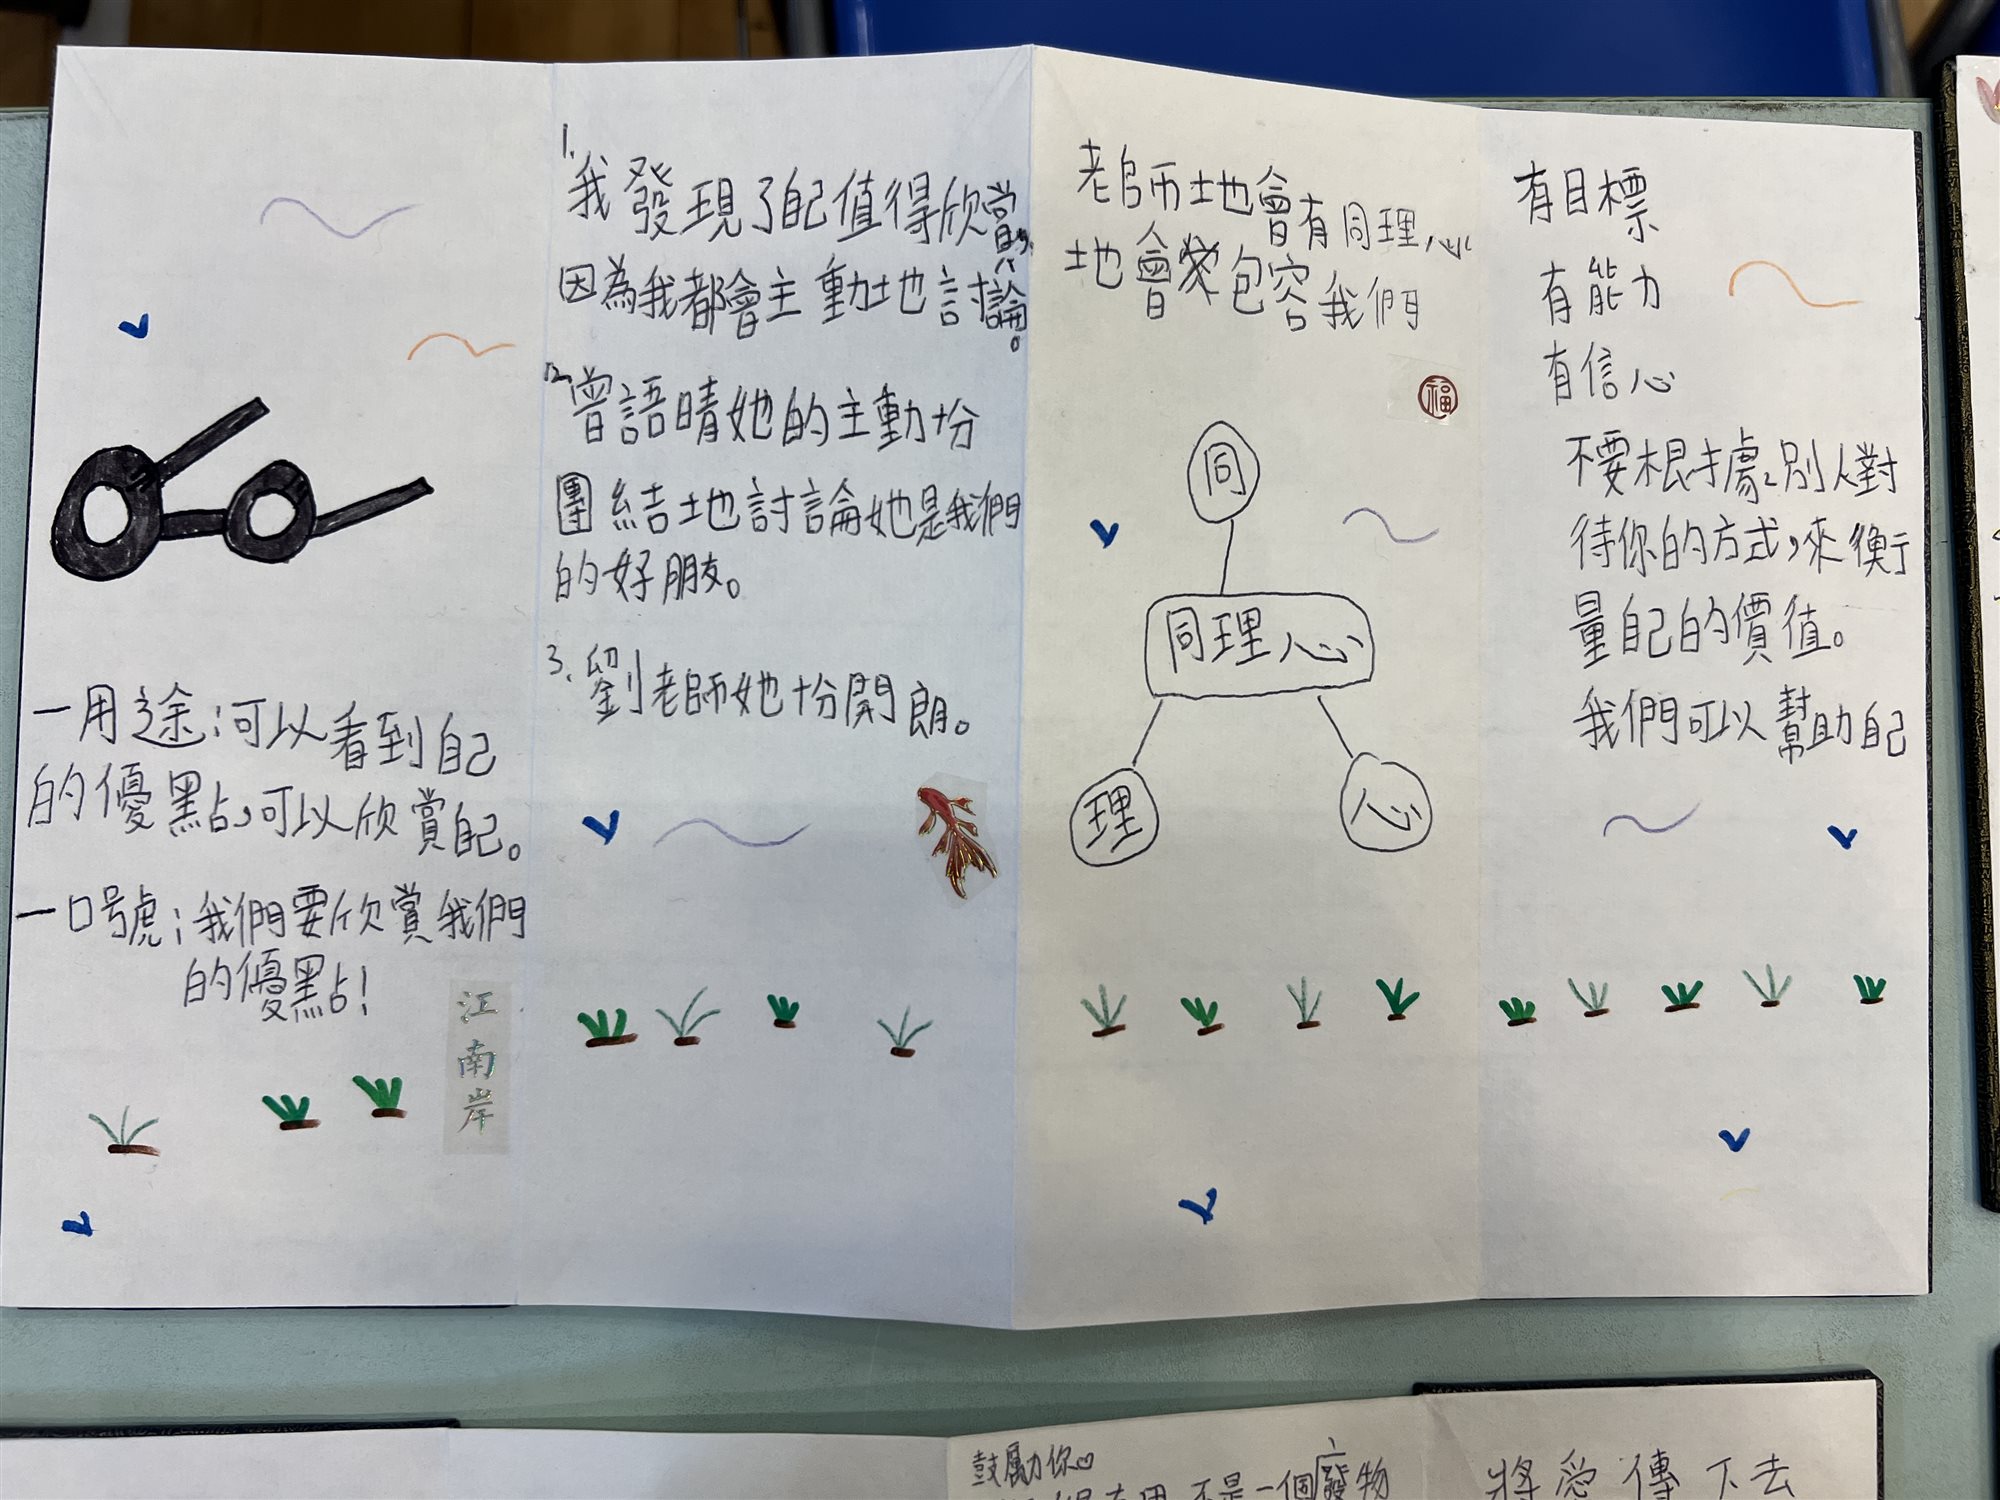 一用途：可以看到自己
的優點，可以欣賞自己。
一口號：我們要欣賞我們
的優點！
江南岸
1.我發現了自己值得欣賞，
因為我都會主動地討論。
2.曾語晴她的主動十份
團結地討論她是我們
的好朋友。
3.劉老師她十份開朗。
老師地會有同理心
地會包容我們
福
同
同理心
理
心
有目標
有能力
有信心
不要根據別人對
待你的方式，來衡
量自己的價值。
我們可以幫助自己
鼓勵你♡
不是一個廢物
將愛傳下去